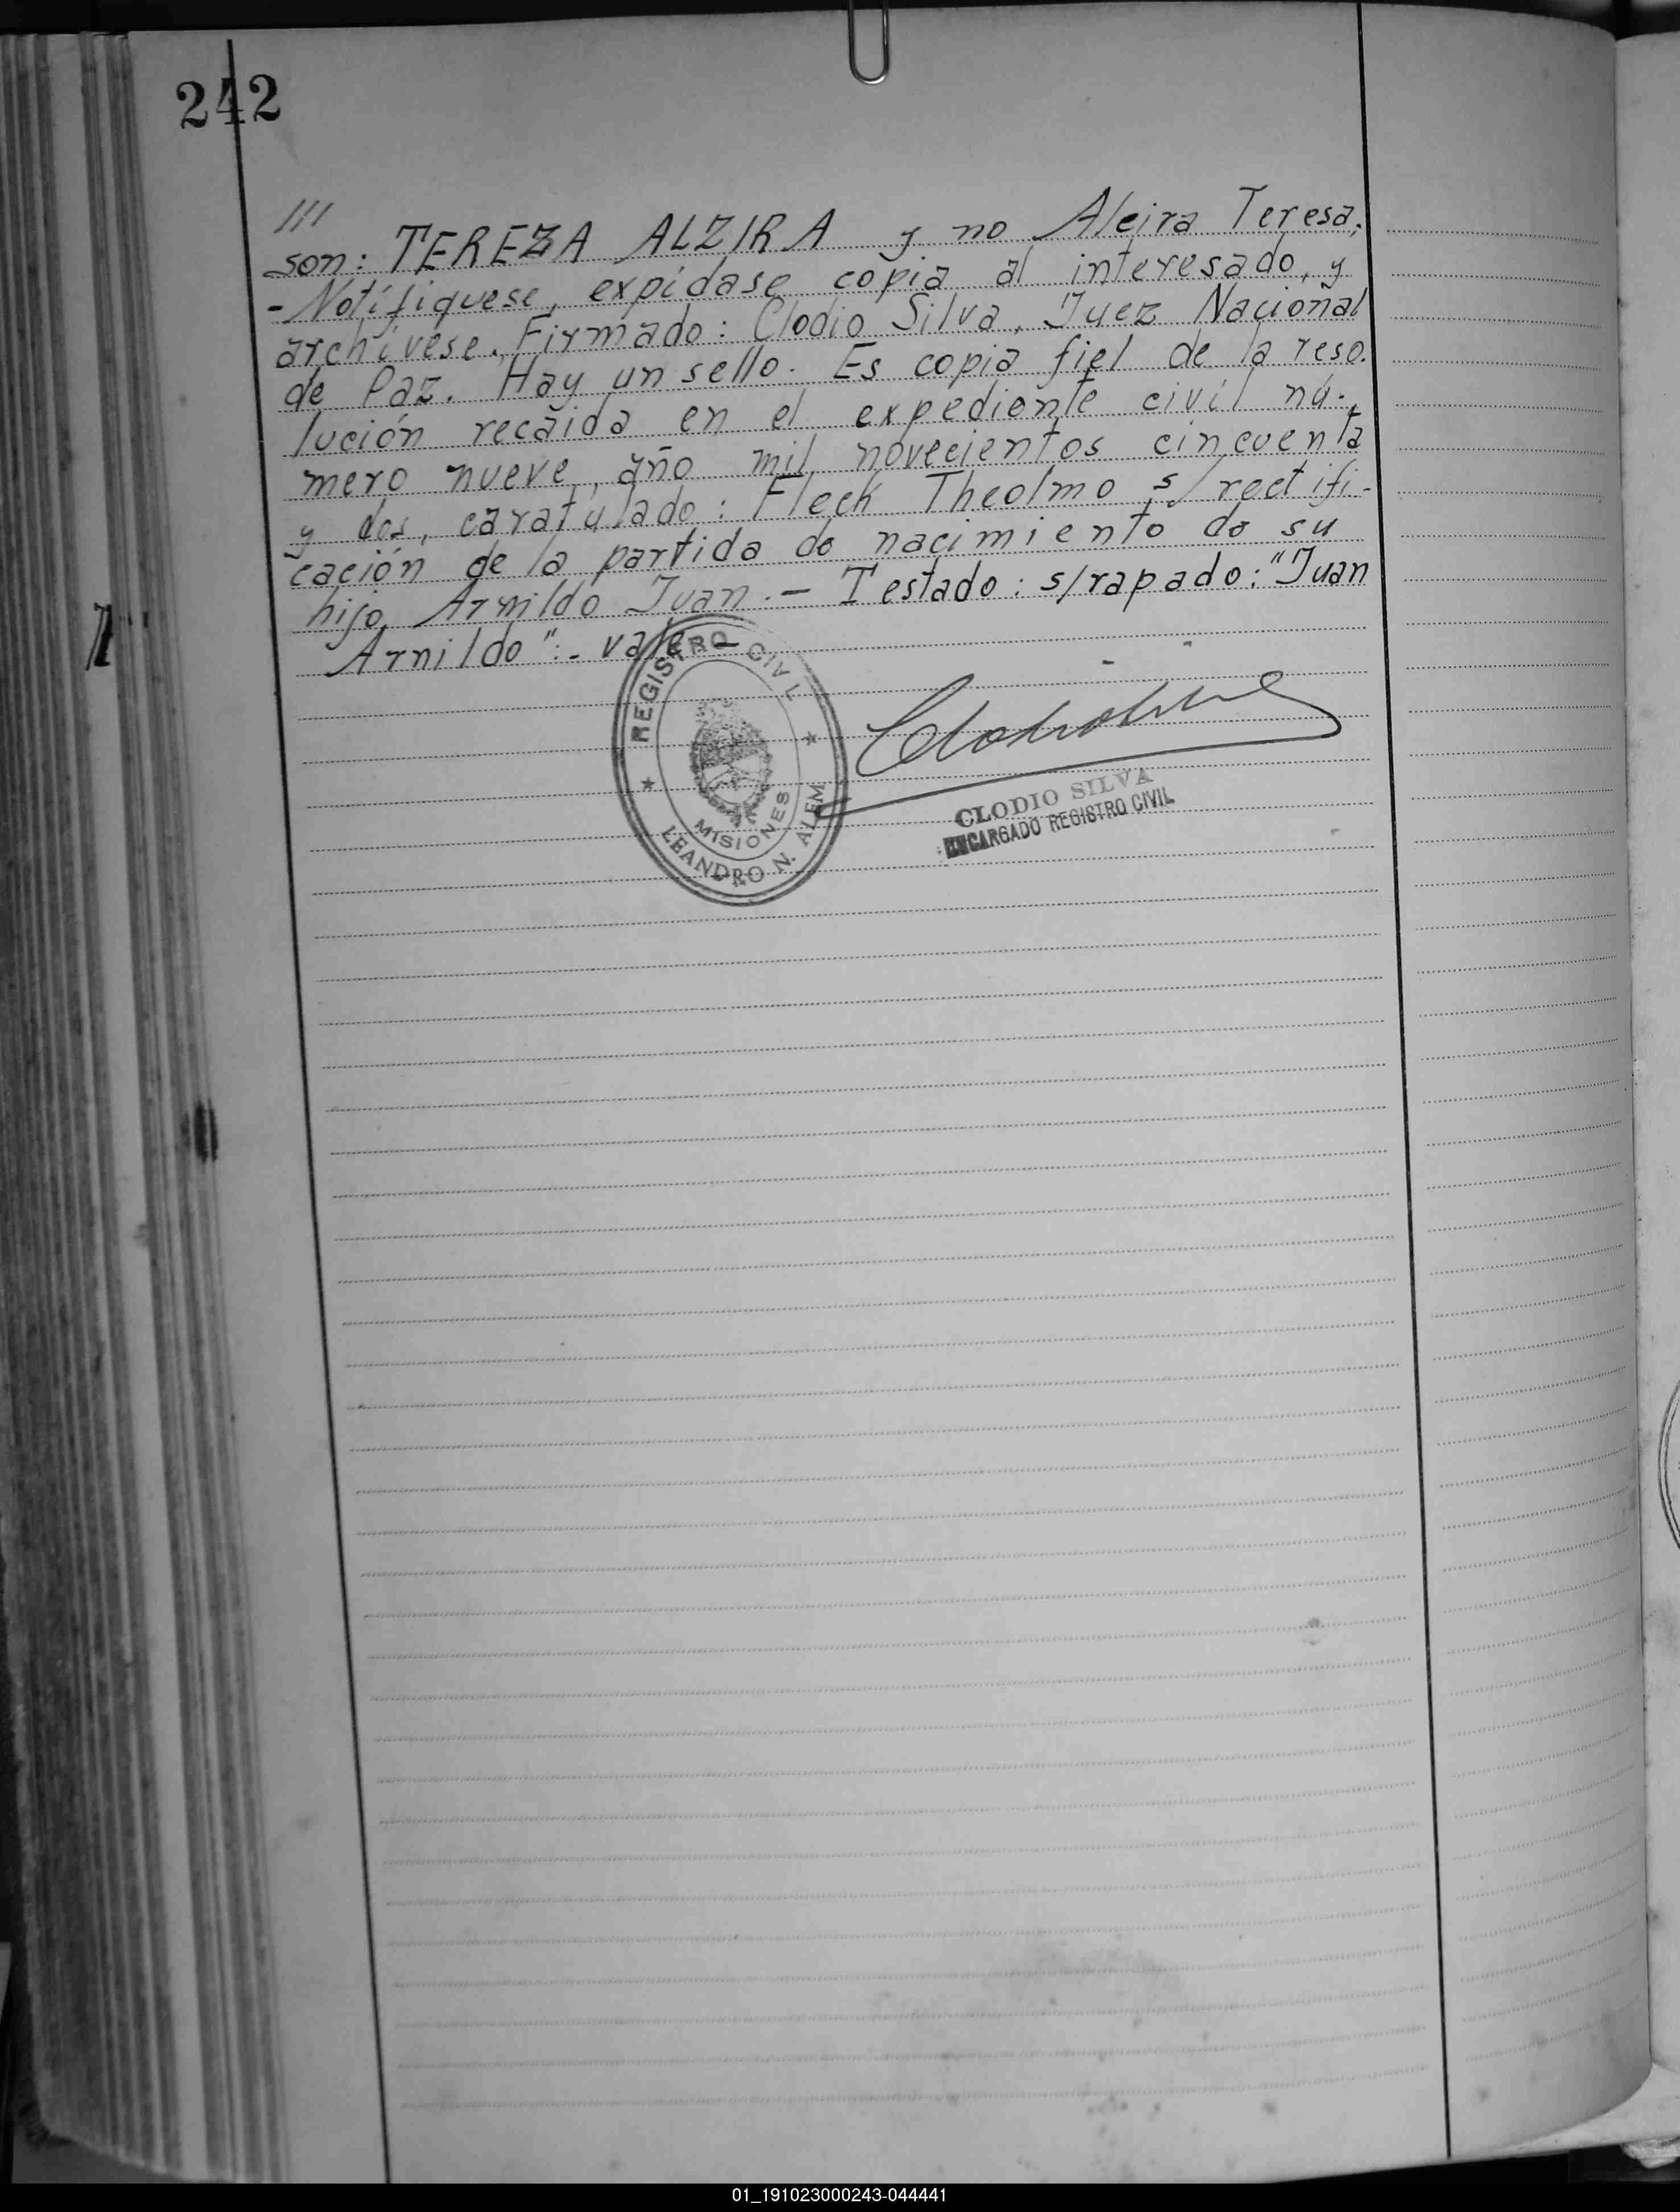 242
///
son: TEREZA ALZIRA y no Alcira Teresa;
- Notifíquese, expídase copia al interesado, y
archívese. Firmado: Clodio Silva, Juez Nacional
de Paz. Hay un sello. Es copia fiel de la reso-
lución recaída en el expediente civil nú-
mero nueve, año mil novecientos cincuenta
y dos, caratulado: Fleck Theolmo s/ rectifi-
cación de la partida de nacimiento de su
hijo Arnildo Juan.— Testado: s/rapado: "Juan
Arnildo":- vale—
REGISTRO CIVIL
MISIONES
LEANDRO N. ALEM
CLODIO SILVA
ENCARGADO REGISTRO CIVIL
01_191023000243-044441